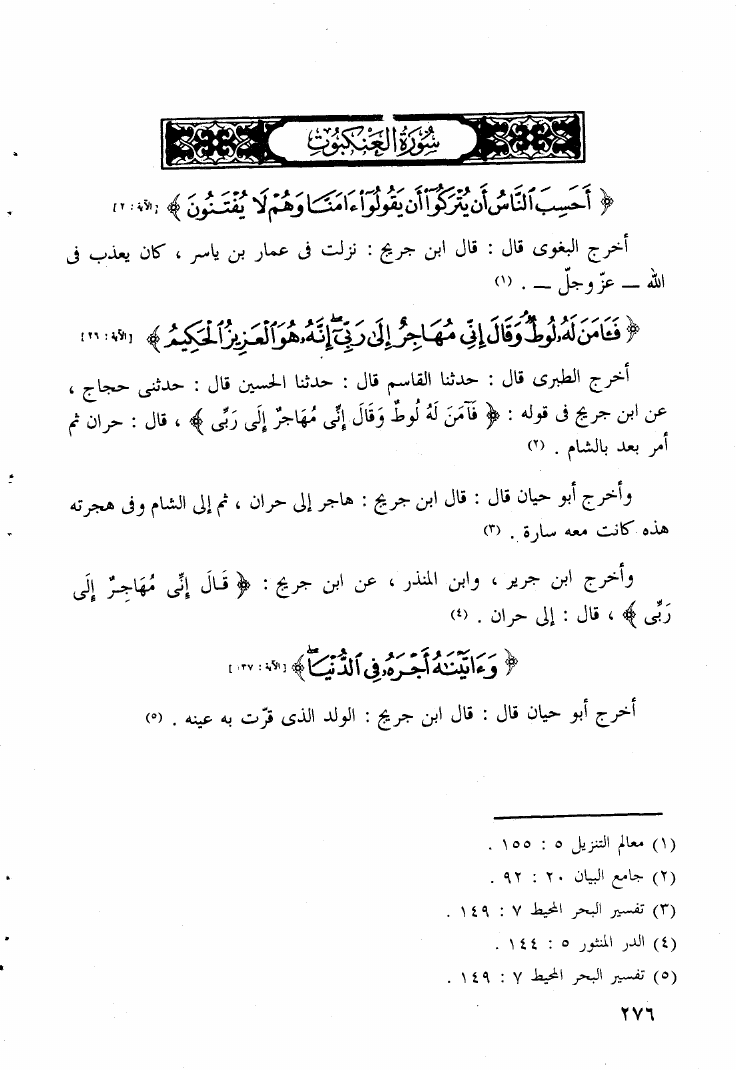 سُورَةُ العَنكَبُوت
﴿ أَحَسِبَ ٱلنَّاسُ أَن يُتْرَكُوٓا۟ أَن يَقُولُوٓا۟ ءَامَنَّا وَهُمْ لَا يُفْتَنُونَ ﴾ [الآية : ٢]
أخرج البغوى قال : قال ابن جريج : نزلت فى عمار بن ياسر ، كان يعذب فى
الله ــ عزّ وجلّ ــ . (١)
﴿ فَـَٔامَنَ لَهُۥ لُوطٌ وَقَالَ إِنِّى مُهَاجِرٌ إِلَىٰ رَبِّىٓ إِنَّهُۥ هُوَ ٱلْعَزِيزُ ٱلْحَكِيمُ ﴾ [الآية : ٢٦]
أخرج الطبرى قال : حدثنا القاسم قال : حدثنا الحسين قال : حدثنى حجاج ،
عن ابن جريج فى قوله : ﴿ فَآمَنَ لَهُ لُوطٌ وَقَالَ إِنِّى مُهَاجِرٌ إِلَى رَبِّى ﴾ ، قال : حران ثم
أمر بعد بالشام . (٢)
وأخرج أبو حيان قال : قال ابن جريج : هاجر إلى حران ، ثم إلى الشام وفى هجرته
هذه كانت معه سارة . (٣)
وأخرج ابن جرير ، وابن المنذر ، عن ابن جريج : ﴿ قَالَ إِنِّى مُهَاجِرٌ إِلَى
رَبِّى ﴾ ، قال : إلى حران . (٤)
﴿ وَءَاتَيْنَٰهُ أَجْرَهُۥ فِى ٱلدُّنْيَا ﴾ [الآية : ٢٧]
أخرج أبو حيان قال : قال ابن جريج : الولد الذى قرّت به عينه . (٥)
(١) معالم التنزيل ٥ : ١٥٥ .
(٢) جامع البيان ٢٠ : ٩٢ .
(٣) تفسير البحر المحيط ٧ : ١٤٩ .
(٤) الدر المنثور ٥ : ١٤٤ .
(٥) تفسير البحر المحيط ٧ : ١٤٩ .
٢٧٦